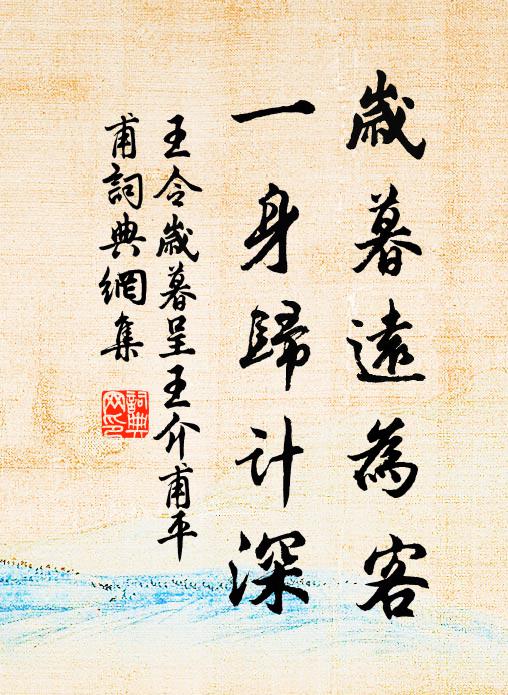 歲暮遠為客
一身歸计深
王令歲暮呈王介甫平
甫詞典網集
詞典
网印